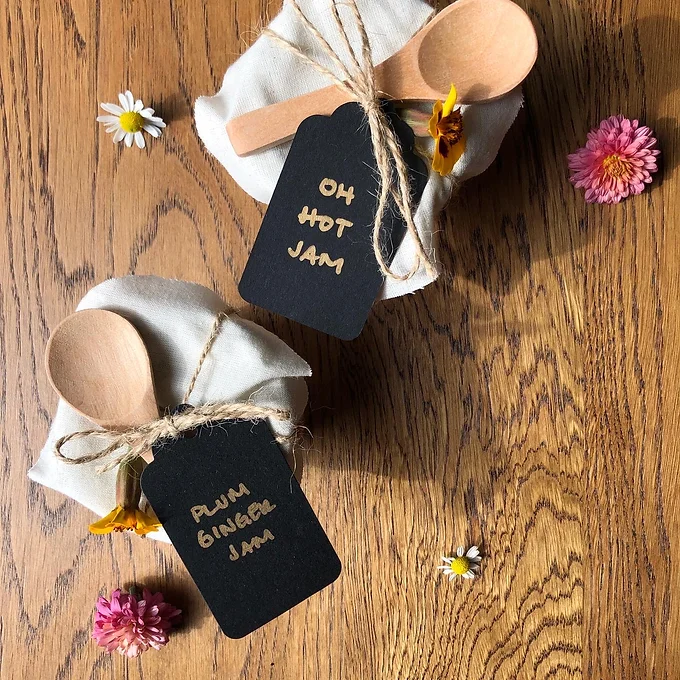 OH
HOT
JAM
PLUM
GINGER
JAM